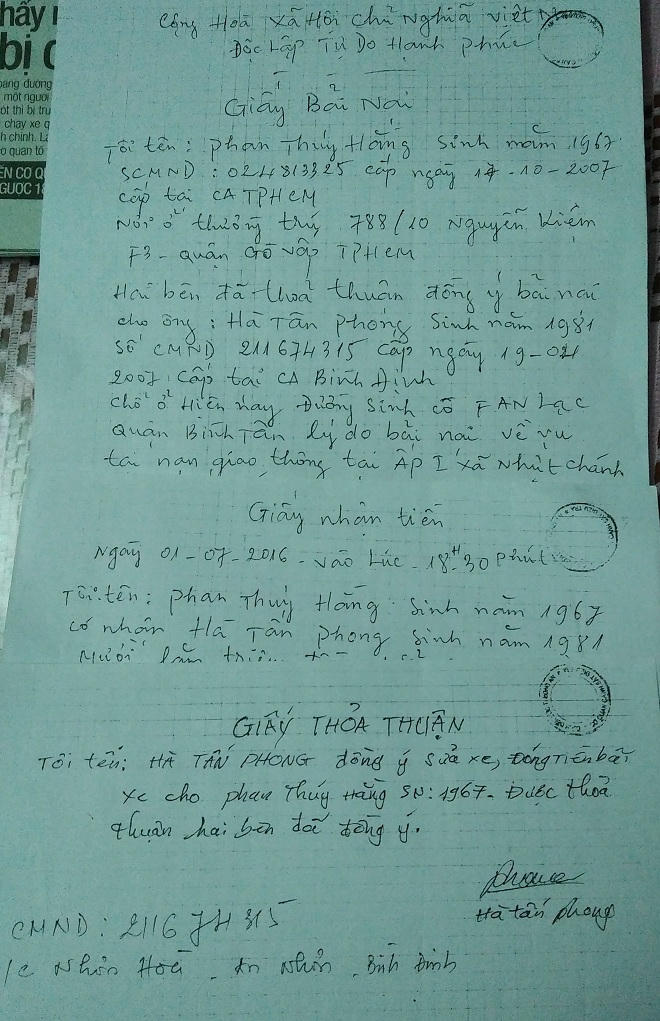 hấy
bị
oang đường
một người
ót thì bị tru
chạy xe q
h chính. Lậ
o quan tố
ÊN CƠ QU
GƯỢC 18
Cộng Hoà Xã Hội Chủ Nghĩa việt N
Độc Lập Tự Do Hạnh phúc
Giấy Bãi Nại
Tôi tên: phan Thúy Hằng Sinh năm 1967
SCMND: 024813325 cấp ngày 17-10-2007
cấp tại CA TPHCM
Nơi ở thường trú 788/10 Nguyễn Kiệm
F3- quận Gò vấp TPHCM
Hai bên đã thoả thuận đồng ý bãi nại
cho ông: Hà Tấn phong Sinh năm 1981
Số CMND 211674315 cấp ngày 19-04
2007 cấp tại CA Bình Định
chổ ở Hiện nay Đường Sinh cỏ F AN Lạc
quận Bình Tân. lý do bãi nại về vụ
tai nạn giao thông tại Ấp I xã Nhựt chánh
Giấy nhận tiền
Ngày 01-07-2016- vào Lúc-18H30 phút
Tôi tên: phan Thúy Hằng Sinh năm 1967
có nhận Hà Tấn phong Sinh năm 1981
Mười lăm triệu
GIẤY THỎA THUẬN
Tôi tên: HÀ TẤN PHONG đồng ý sửa xe, ĐÓNG TIỀN bãi
xe cho phan Thúy Hằng SN: 1967- Được thoả
thuận hai bên đã đồng ý.
Hà tấn phong
CMND: 211674315
Nhơn Hoà - An Nhơn - Bình Định